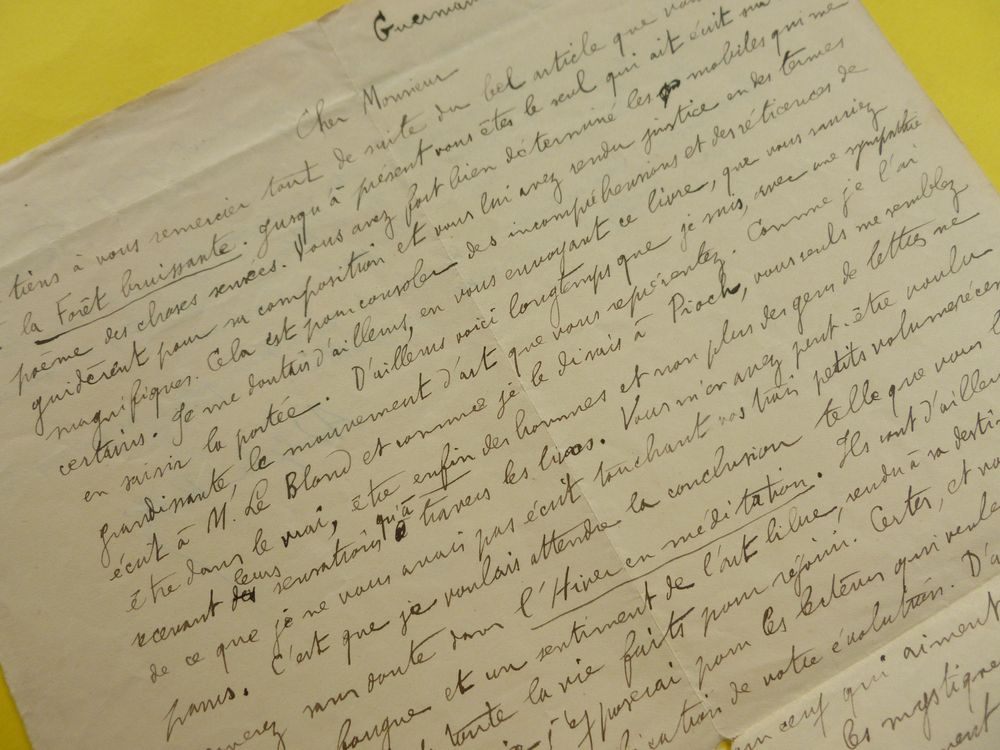 Cher Monsieur
tiens à vous remercier tout de suite du bel article que
la Forêt bruissante. Jusqu'à présent vous êtes le seul qui ait écrit sur
poème des choses sensées. Vous avez fort bien déterminé les mobiles qui me
guidèrent pour sa composition et vous lui avez rendu justice en des termes
magnifiques. Cela est pour consoler des incompréhensions et des réticences de
certains. Je me doutais d'ailleurs, en vous envoyant ce livre, que vous sauriez
en saisir la portée. D'ailleurs voici longtemps que je suis, avec une sympathie
grandissante, le mouvement d'art que vous représentez. Comme je l'ai
écrit à M. Le Blond et comme je le disais à Pioch, vous seuls me semblez
être dans le vrai, être enfin des hommes et non plus des gens de lettres ne
recevant leurs sensations qu'à travers les livres. Vous m'en avez peut-être voulu
de ce que je ne vous avais pas écrit touchant vos trois petits volumes
parus. C'est que je voulais attendre la conclusion telle que vous
sans doute dans l'Hiver en méditation. Ils sont
langue et un sentiment de l'art libre, rendu à sa
toute la vie faits pour réjouir. Certes, et
pour les lecteurs qui
de votre évolution.
ceux qui aiment
les